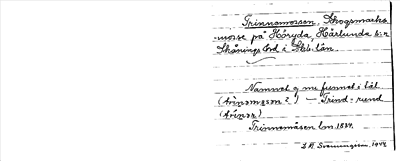 Trinnamossen, Skogsmarks-
mosse på Höryda, Hårlunda s:n
Skånings hd i Skb. län.
Namnet ej nu funnet i bil.
(trinamosen?) — Trind = rund
(trinar)
Trinnemåsen lm. 1834.
Svenungsson. 1944